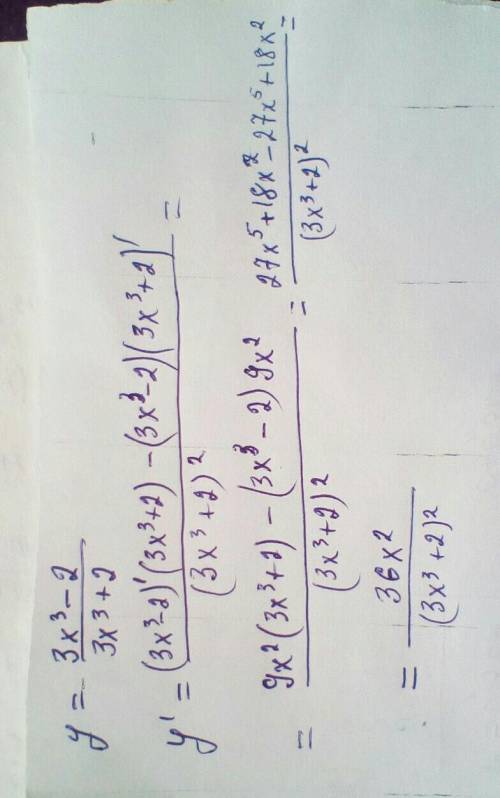 y = (3x³-2)/(3x³+2)
y' = ((3x³-2)'(3x³+2) - (3x³-2)(3x³+2)')/(3x³+2)² =
= (9x²(3x³+2) - (3x³-2)9x²)/(3x³+2)² = (27x⁵+18x²-27x⁵+18x²)/(3x³+2)² =
= 36x²/(3x³+2)²